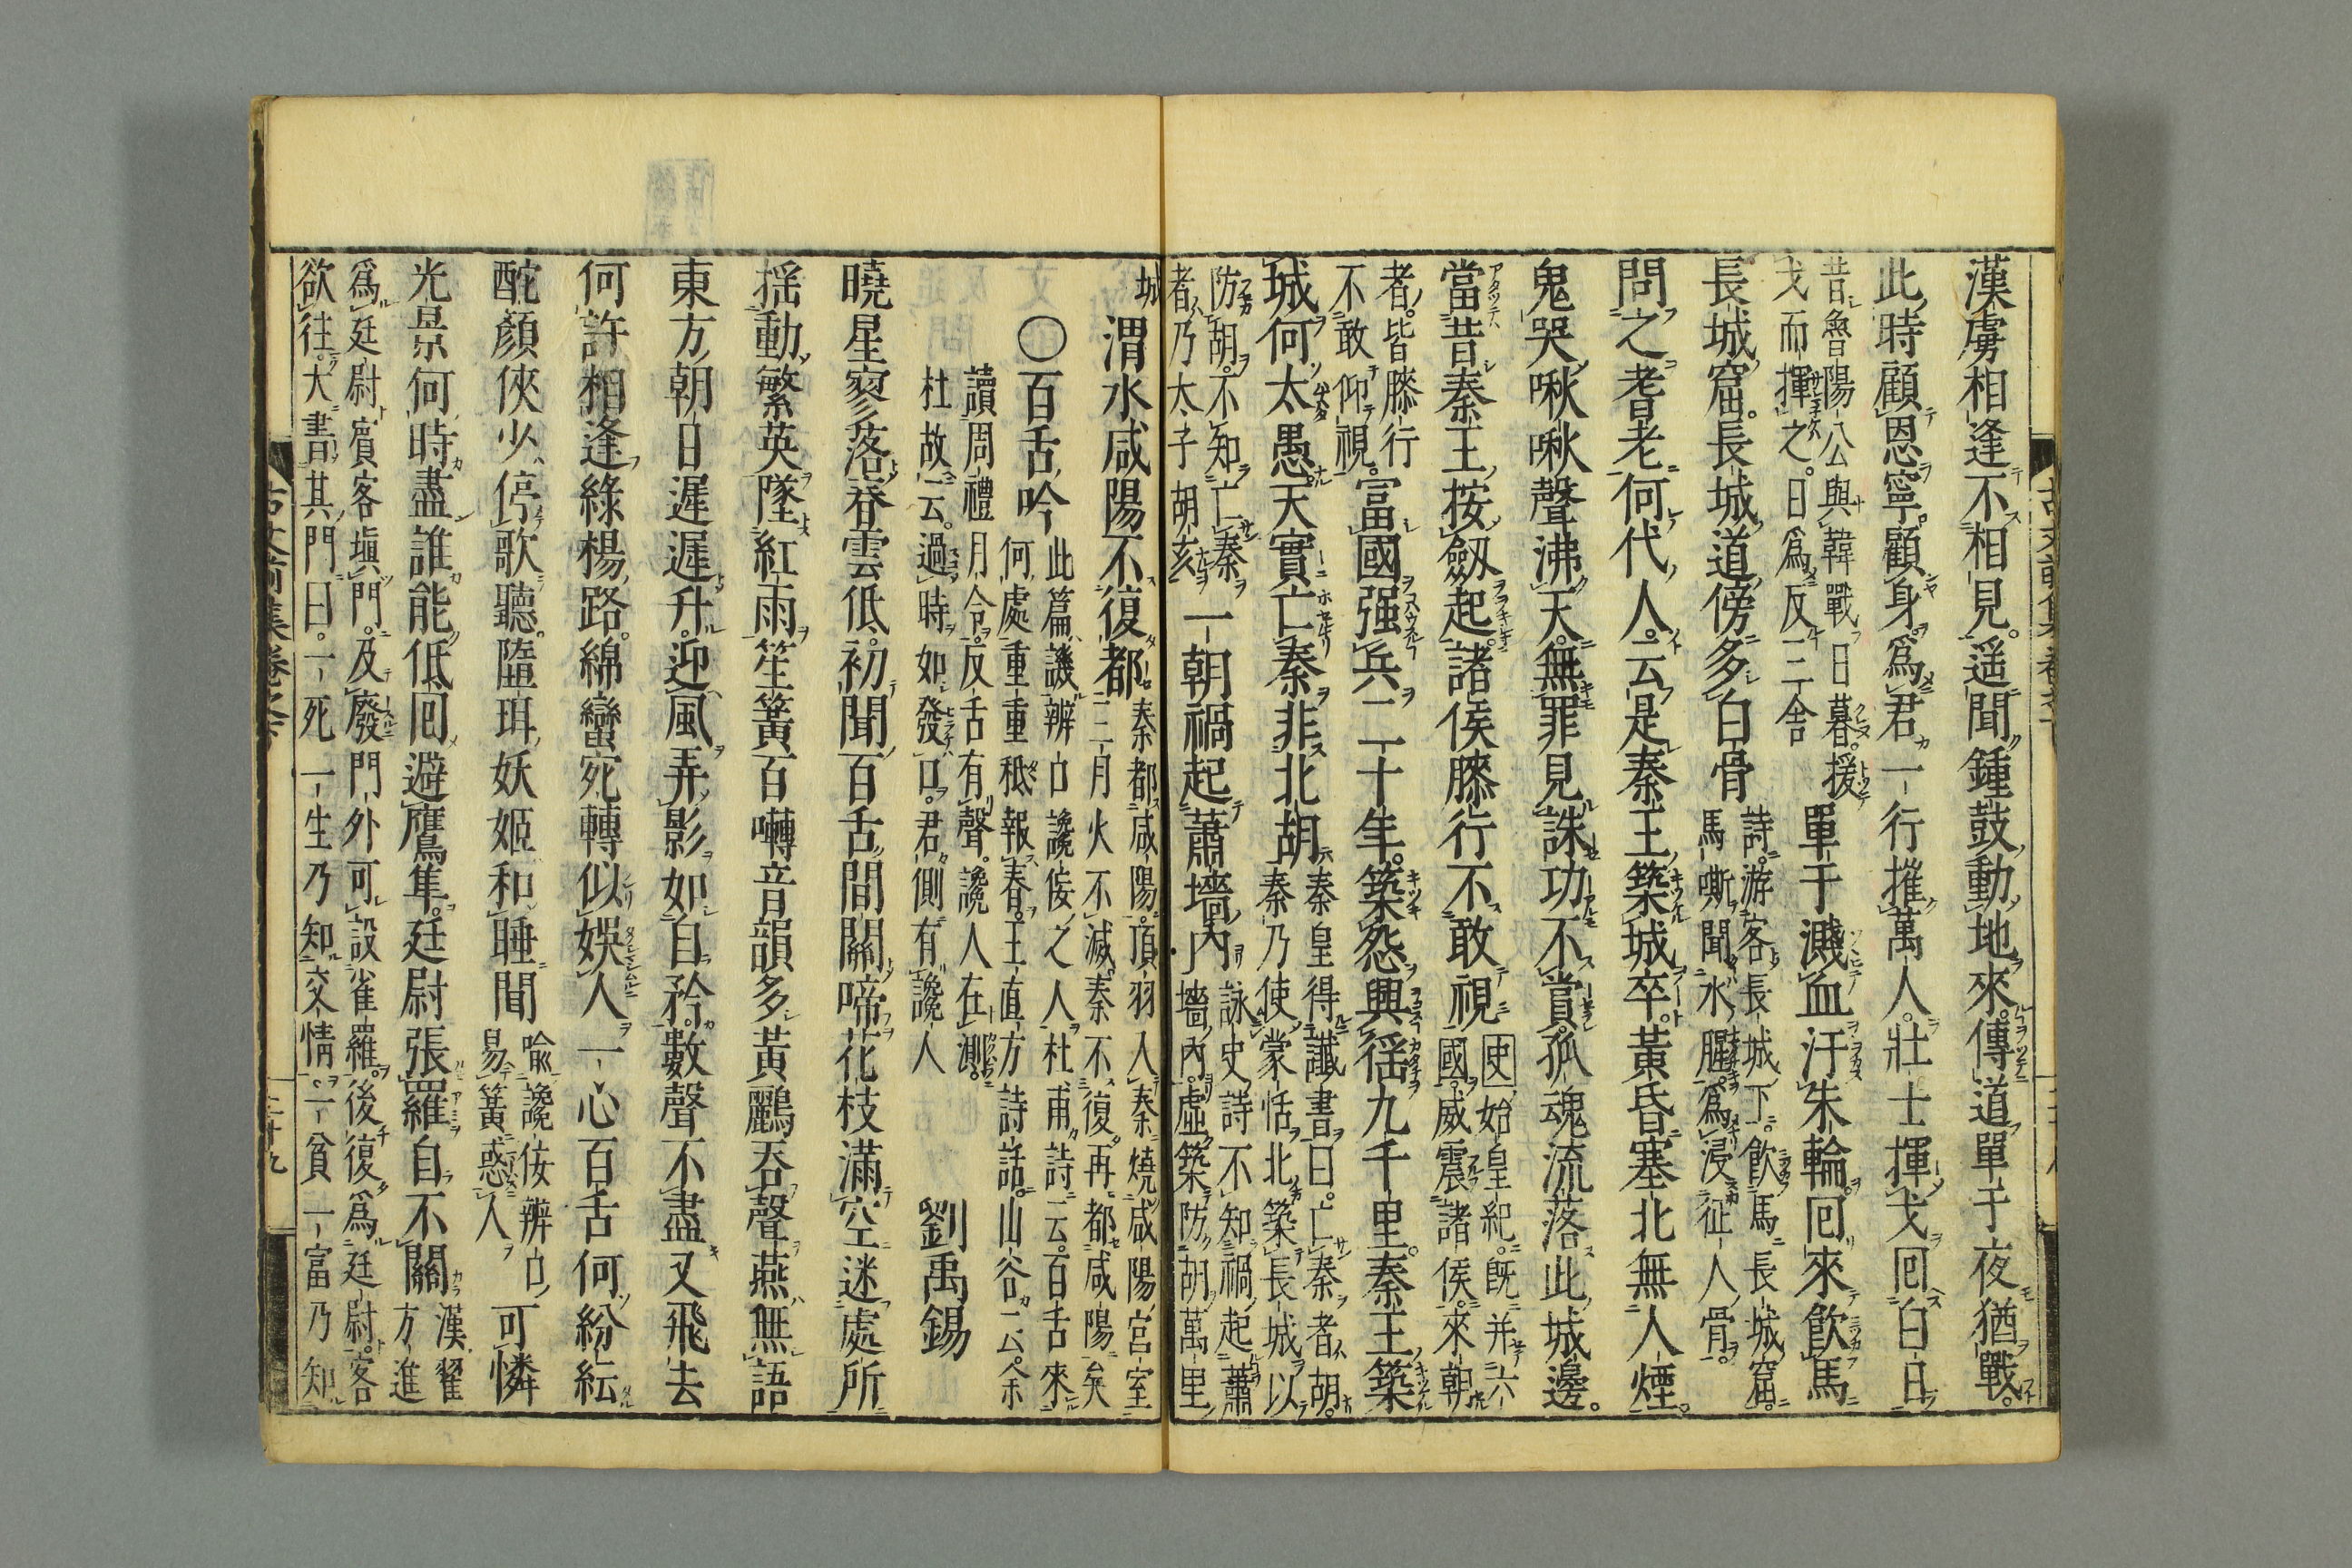 漢虜相逢不相見。遥聞鍾鼓動地來。傳道單于夜猶戰。
此時顧恩寧顧身。爲君一行摧萬人。壯士揮戈回白日
昔魯陽公與韓戰日暮。援
戈而揮之。日爲反三舍
單于濺血汙朱輪。回來飲馬
長城窟。長城道傍多白骨
詩。游客長城下。飲馬長城窟。
馬嘶聞水腥。爲浸征人骨。
問之耆老何代人。云是秦王築城卒。黃昏塞北無人煙。
鬼哭啾啾聲沸天。無罪見誅功不賞。孤魂流落此城邊。
當昔秦王按劔起。諸侯膝行不敢視
史始皇紀。既并六
國。威震諸侯。來朝
者。皆膝行
不敢仰視。
富國强兵二十年。築怨興徭九千里。秦王築
城何太愚。天實亡秦非北胡
秦皇得讖書曰。亡秦者胡。
秦乃使蒙恬北築長城以
防胡。不知亡秦
者乃太子胡亥
一朝禍起蕭墻內
詠史詩不知禍起蕭
墻內。虛築防胡萬里
城
渭水咸陽不復都
秦都咸陽。項羽入秦燒咸陽宮室
三月火不滅。秦不復再都咸陽矣
〇百舌吟
此篇譏辨口讒侫之人。杜甫詩云。百舌來
何處重重秪報春。王直方詩話。山谷云。余
讀周禮月令。反舌有聲。讒人在測。
杜故云。過時如發口。君側有讒人
劉禹錫
曉星寥落春雲低。初聞百舌間關啼。花枝滿空迷處所
揺動繁英墜紅雨。笙簧百囀音韻多。黃鸝吞聲燕無語
東方朝日遲遲升。迎風弄影如自矜。數聲不盡又飛去
何許相逢綠楊路。綿蠻宛轉似娛人。一心百舌何紛紜
酡顔俠少停歌聽。墮珥妖姬和睡聞
喩讒侫辨口
易簧惑人
可憐
光景何時盡。誰能低回避鷹隼。廷尉張羅自不關
漢翟
方進
爲廷尉賓客塡門。及廢門外可設雀羅。後復爲廷尉。客
欲往。大書其門曰。一死一生乃知交情。一貧一富乃知